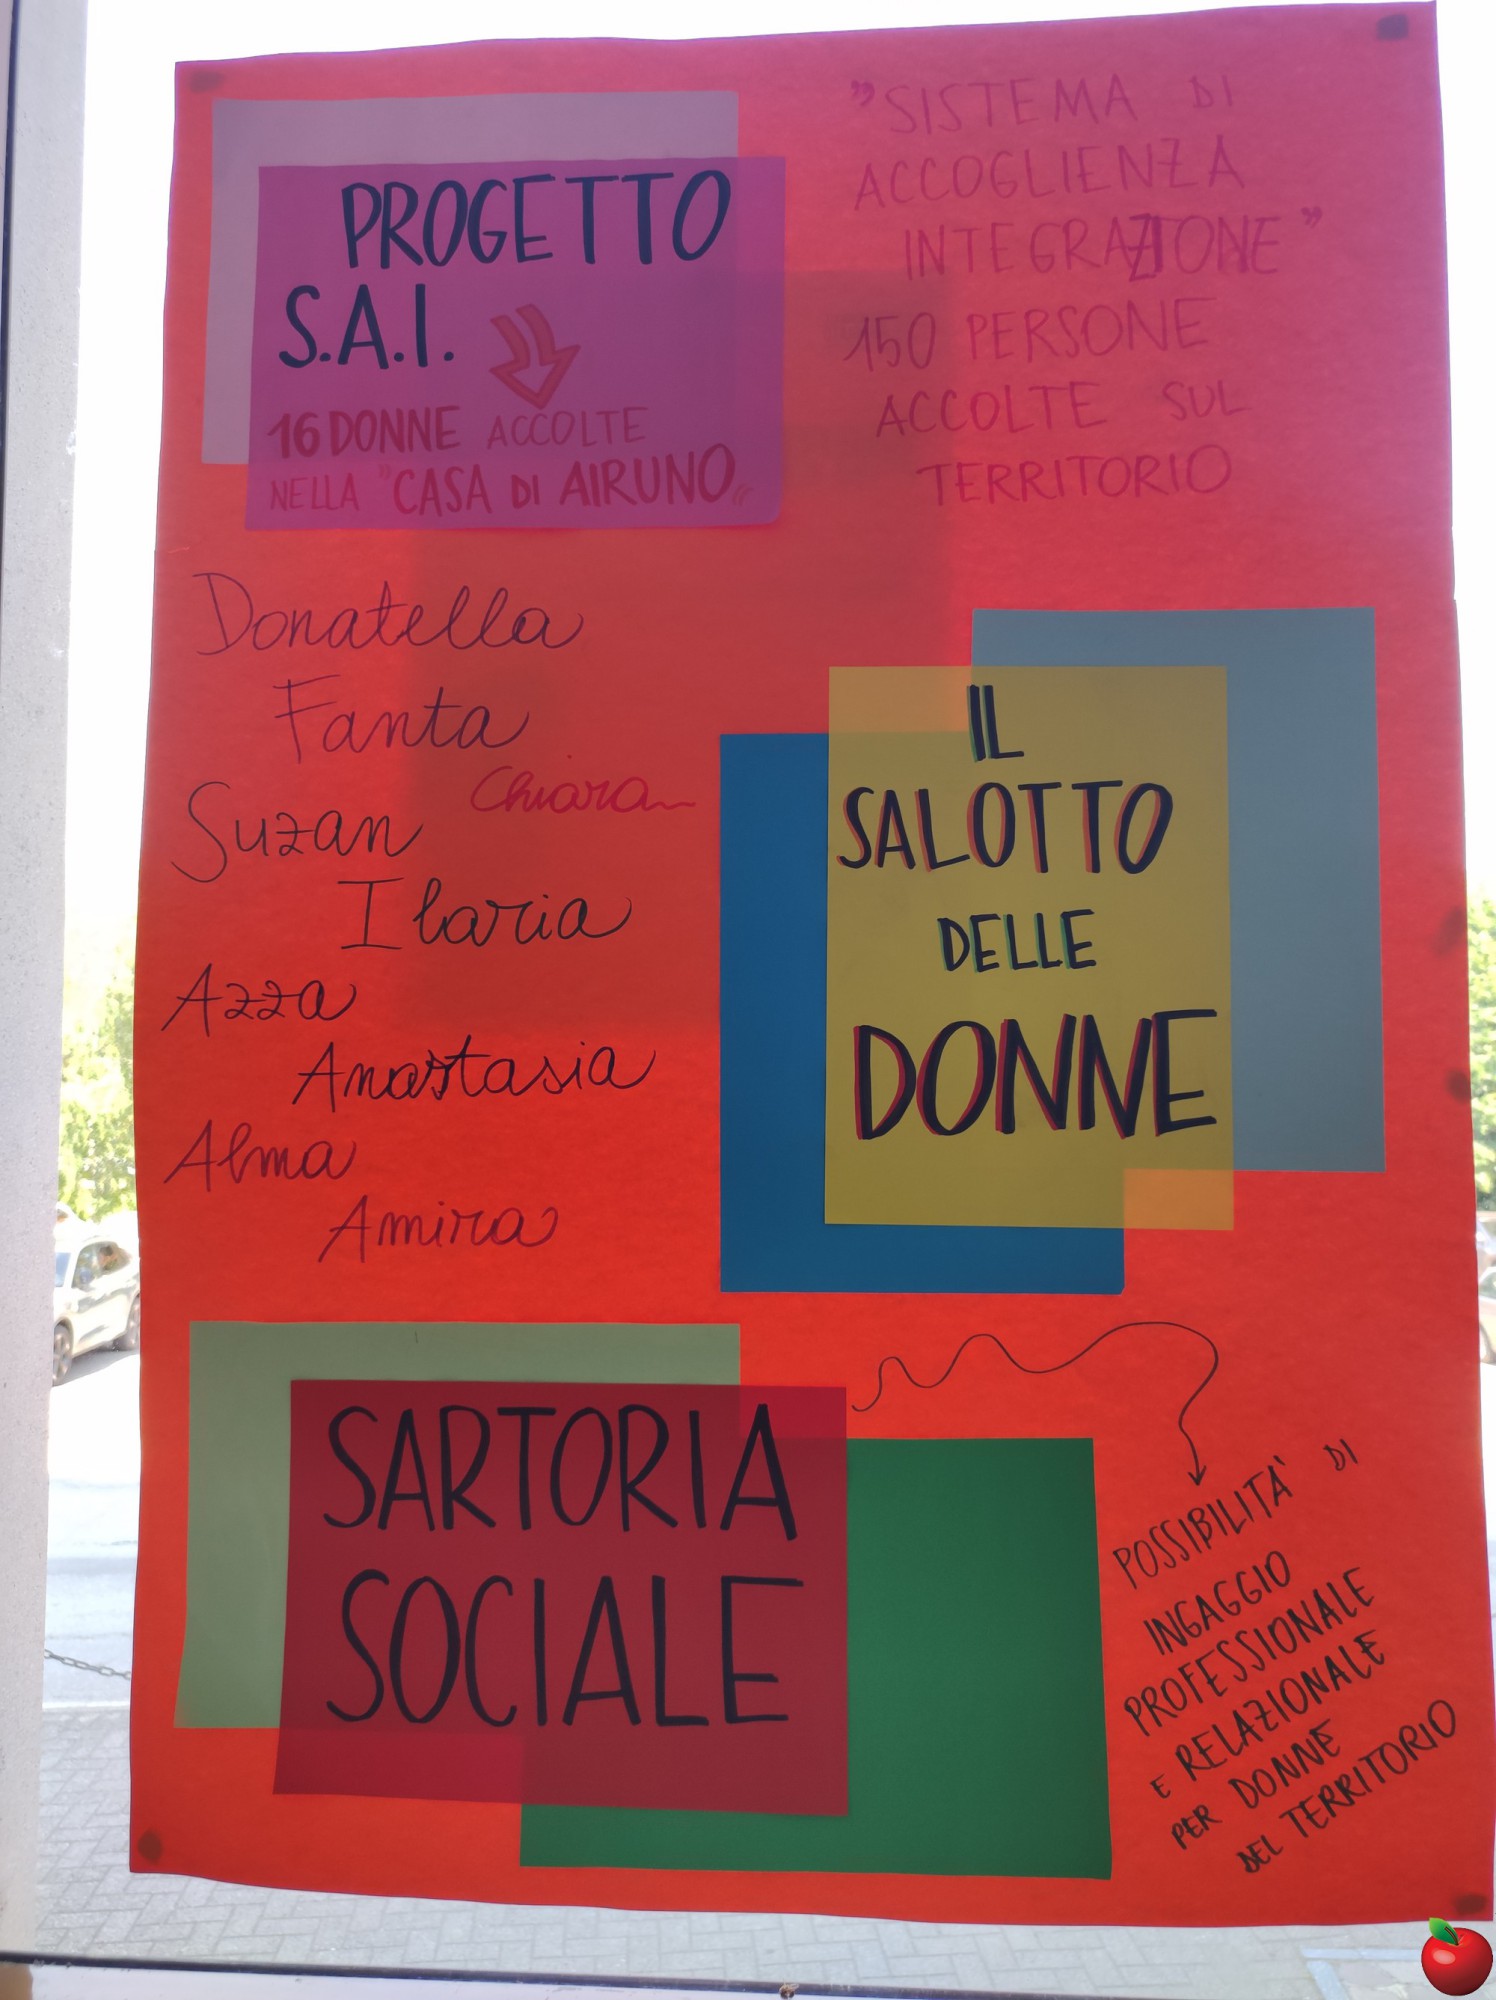 PROGETTO
S.A.I.
16 DONNE ACCOLTE
NELLA "CASA DI AIRUNO"
"SISTEMA DI
ACCOGLIENZA
INTEGRAZIONE"
150 PERSONE
ACCOLTE SUL
TERRITORIO
Donatella
Fanta
Chiara
Suzan
Ilaria
Azza
Anastasia
Alma
Amira
IL
SALOTTO
DELLE
DONNE
SARTORIA
SOCIALE
POSSIBILITÀ DI
INGAGGIO
PROFESSIONALE
E RELAZIONALE
PER DONNE
DEL TERRITORIO